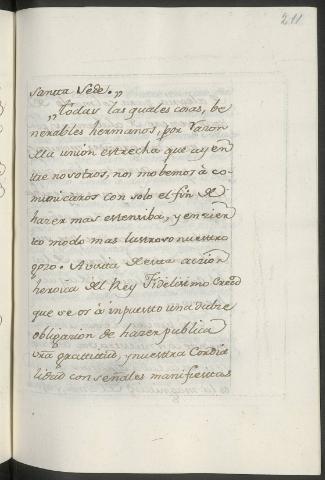 211
Santta Sede.,,
,,Todas las quales cosas, be
nerables hermanos, por razon
dla unión estrecha que ay en
tre nosotros, nos mobemos à co-
municaros con solo el fin de
hazer mas estensiba, y en zier
to modo mas lustroso nuestro
gozo. A vista de esta accion
heroica del Rey Fidelisimo Creed
que se os à inpuesto una doble
obligazion de hazer publica
vra gratitud, y nuestra Cordia
lidad con señales manifiestas